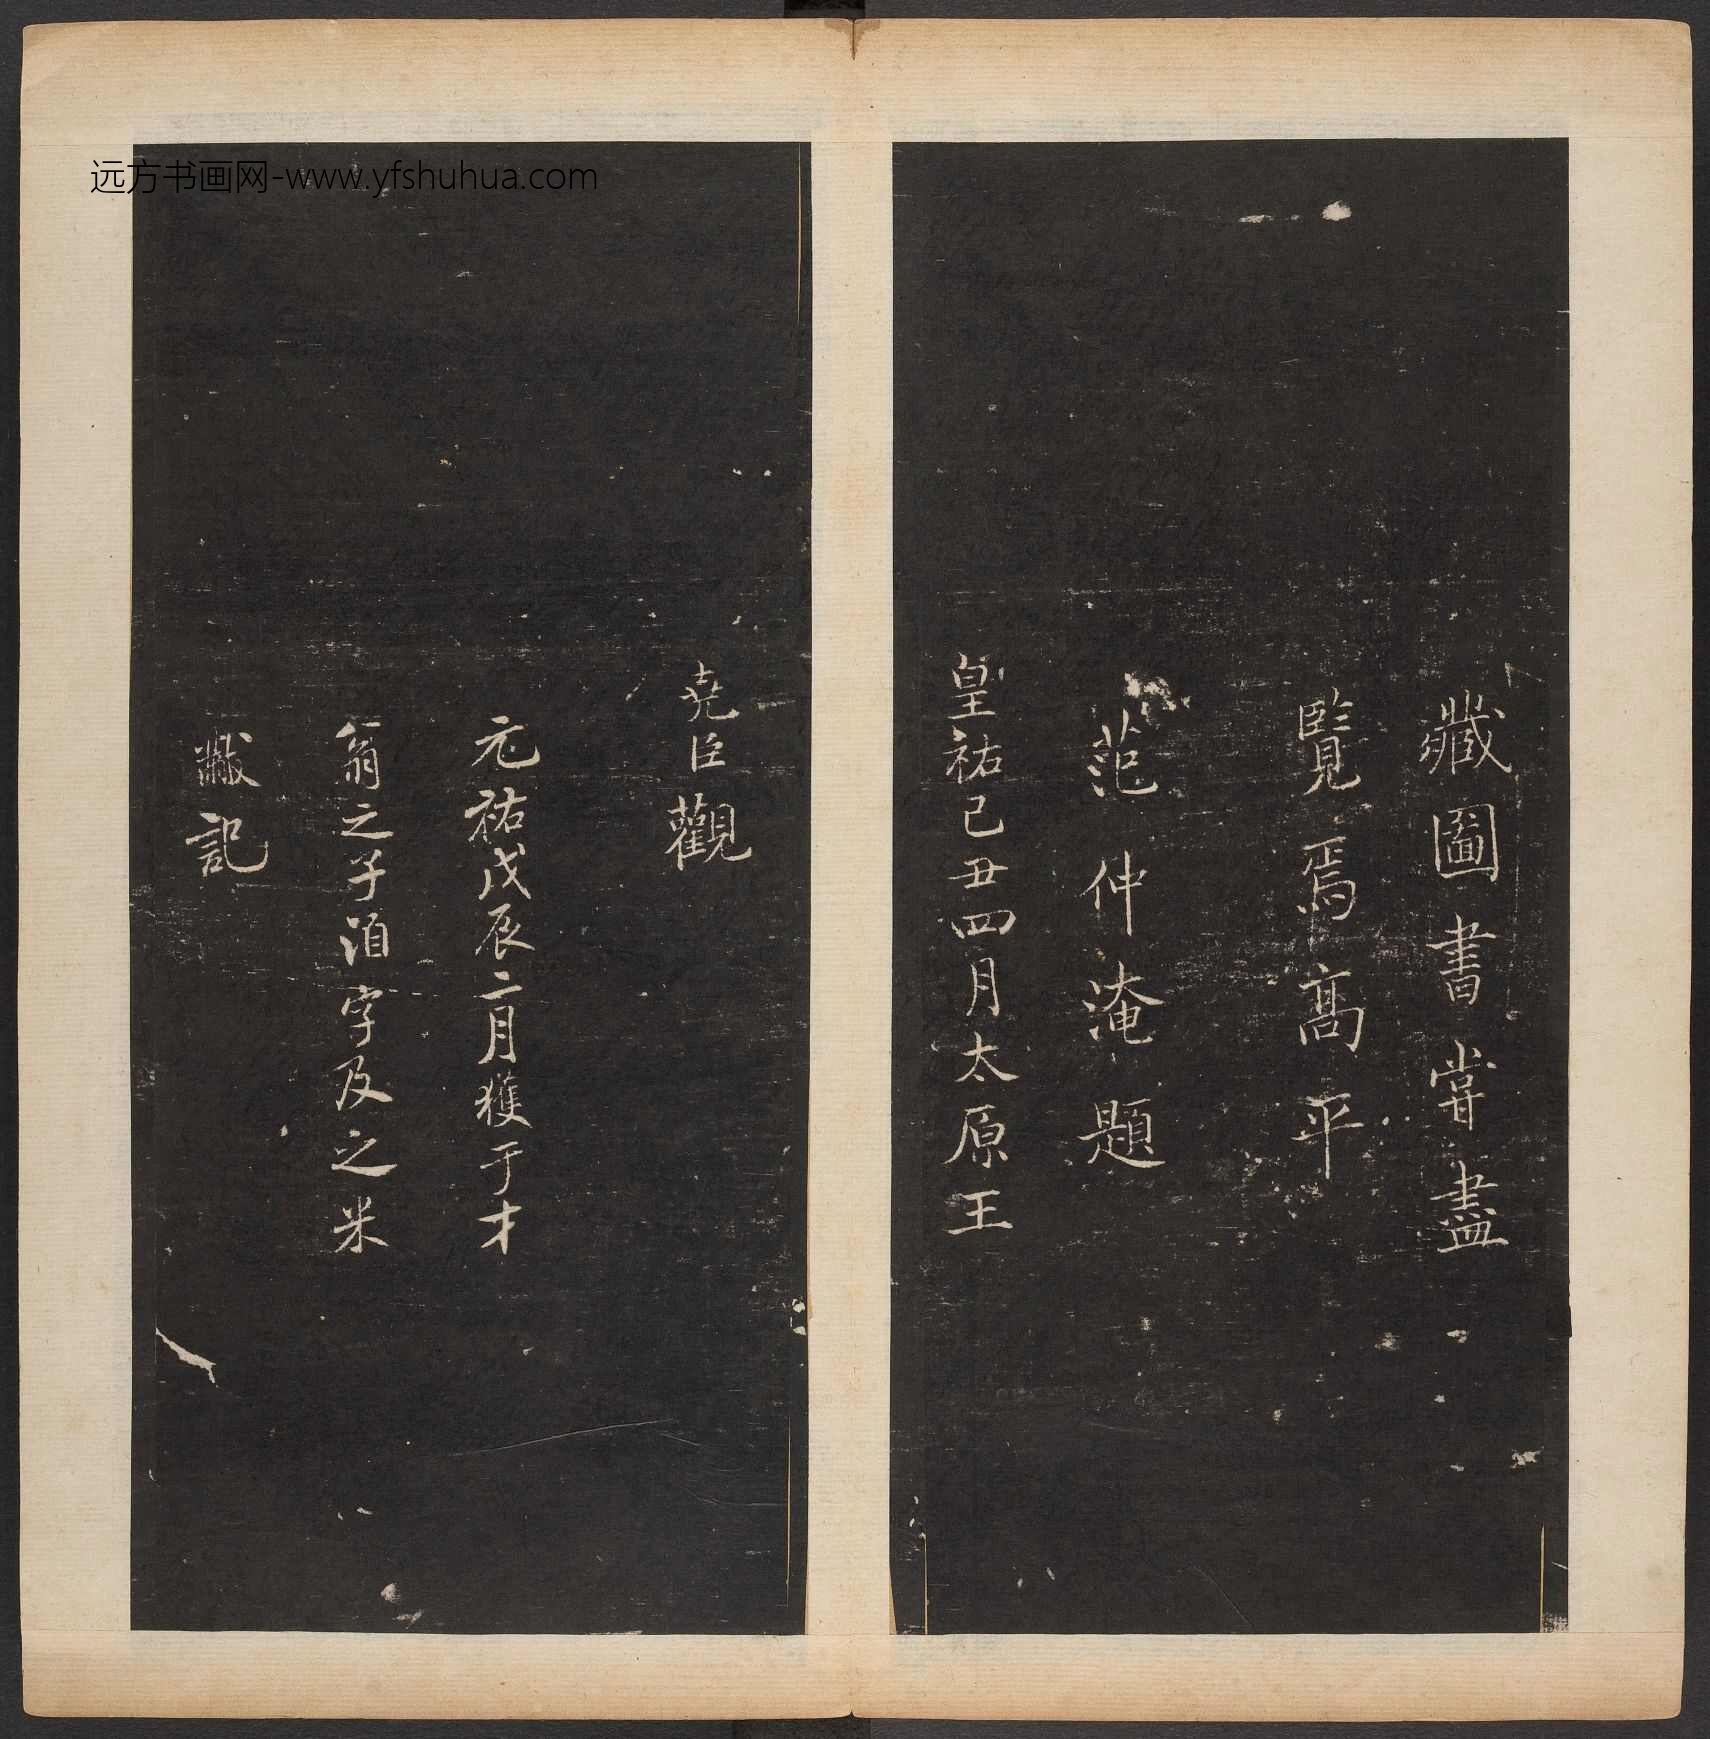 远方书画网-www.yfshuhua.com
藏圖書甞盡
覽焉髙平
范仲淹題
皇祐己丑四月太原王
堯臣觀
元祐戊辰二月獲于才
翁之子洎字及之米
黻記